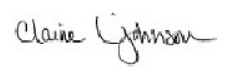 Claire Johnson